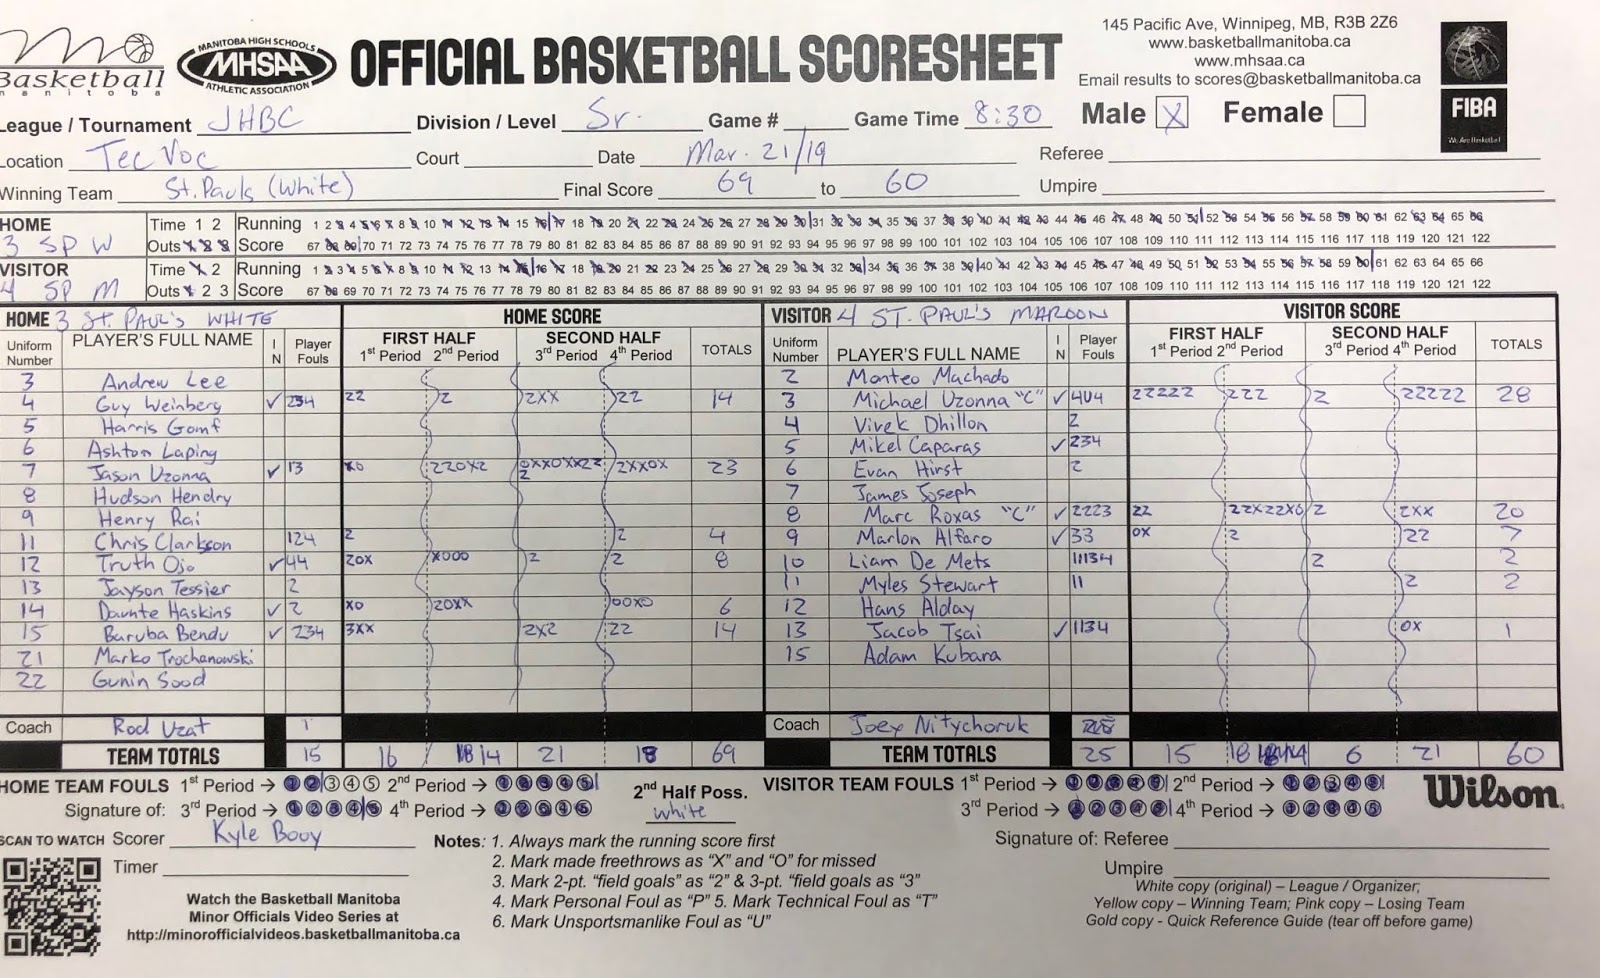 Basketball
manitoba
MANITOBA HIGH SCHOOLS
MHSAA
ATHLETIC ASSOCIATION
OFFICIAL BASKETBALL SCORESHEET
145 Pacific Ave, Winnipeg, MB, R3B 2Z6
www.basketballmanitoba.ca
www.mhsaa.ca
Email results to scores@basketballmanitoba.ca
FIBA
We Are Basketball
League / Tournament JHBC Division / Level Sr. Game # Game Time 8:30 Male X Female
Location Tec Voc Court Date Mar. 21/19 Referee
Winning Team St. Pauls (White) Final Score 69 to 60 Umpire
HOME Time 1 2 Running 1 2 3 4 5 6 7 8 9 10 11 12 13 14 15 16 17 18 19 20 21 22 23 24 25 26 27 28 29 30 31 32 33 34 35 36 37 38 39 40 41 42 43 44 45 46 47 48 49 50 51 52 53 54 55 56 57 58 59 60 61 62 63 64 65 66
3 SP W Outs 1 2 3 Score 67 68 69 70 71 72 73 74 75 76 77 78 79 80 81 82 83 84 85 86 87 88 89 90 91 92 93 94 95 96 97 98 99 100 101 102 103 104 105 106 107 108 109 110 111 112 113 114 115 116 117 118 119 120 121 122
VISITOR Time 1 2 Running 1 2 3 4 5 6 7 8 9 10 11 12 13 14 15 16 17 18 19 20 21 22 23 24 25 26 27 28 29 30 31 32 33 34 35 36 37 38 39 40 41 42 43 44 45 46 47 48 49 50 51 52 53 54 55 56 57 58 59 60 61 62 63 64 65 66
4 SP M Outs 1 2 3 Score 67 68 69 70 71 72 73 74 75 76 77 78 79 80 81 82 83 84 85 86 87 88 89 90 91 92 93 94 95 96 97 98 99 100 101 102 103 104 105 106 107 108 109 110 111 112 113 114 115 116 117 118 119 120 121 122
HOME 3 ST. PAUL'S WHITE HOME SCORE VISITOR 4 ST. PAUL'S MAROON VISITOR SCORE
Uniform Number PLAYER'S FULL NAME IN Player Fouls FIRST HALF 1st Period 2nd Period SECOND HALF 3rd Period 4th Period TOTALS Uniform Number PLAYER'S FULL NAME IN Player Fouls FIRST HALF 1st Period 2nd Period SECOND HALF 3rd Period 4th Period TOTALS
3 Andrew Lee 2 Monteo Machado
4 Guy Weinberg ✓ 234 22 2 2XX 22 14 3 Michael Uzonna "C" ✓ 404 22222 222 2 22222 28
5 Harris Gomf 4 Vivek Dhillon 2
6 Ashton Laping 5 Mikel Caparas ✓ 234
7 Jason Uzonna ✓ 13 XO 220X2 0XXOXX22 2 2XXOX 23 6 Evan Hirst 2
8 Hudson Hendry 7 James Joseph
9 Henry Rai 8 Marc Roxas "C" ✓ 2223 22 22X22XO 2 2XX 20
11 Chris Clarkson 124 2 2 4 9 Marlon Alfaro ✓ 33 OX 2 22 7
12 Truth Ojo ✓ 44 20X X000 2 2 8 10 Liam De Mets 11134 2 2
13 Jayson Tessier 2 11 Myles Stewart 11 2 2
14 Daunte Haskins ✓ 2 XO 20XX 00XO 6 12 Hans Alday
15 Baruba Bendu ✓ 234 3XX 2X2 22 14 13 Jacob Tsai ✓ 1134 OX 1
21 Marko Trochanowski 15 Adam Kubara
22 Gunin Sood
Coach Rod Uzat T Coach Joey Nitychoruk
TEAM TOTALS 15 16 14 21 18 69 TEAM TOTALS 25 15 18 6 21 60
HOME TEAM FOULS 1st Period → 1 2 3 4 5 2nd Period → 1 2 3 4 5 2nd Half Poss. VISITOR TEAM FOULS 1st Period → 1 2 3 4 5 2nd Period → 1 2 3 4 5 Wilson
Signature of: 3rd Period → 1 2 3 4 5 4th Period → 1 2 3 4 5 White 3rd Period → 1 2 3 4 5 4th Period → 1 2 3 4 5
SCAN TO WATCH Scorer Kyle Bouy Notes: 1. Always mark the running score first Signature of: Referee
2. Mark made freethrows as "X" and "O" for missed
Timer 3. Mark 2-pt. "field goals" as "2" & 3-pt. "field goals as "3" Umpire
4. Mark Personal Foul as "P" 5. Mark Technical Foul as "T"
6. Mark Unsportsmanlike Foul as "U"
Watch the Basketball Manitoba
Minor Officials Video Series at
http://minorofficialvideos.basketballmanitoba.ca
White copy (original) – League / Organizer;
Yellow copy – Winning Team; Pink copy – Losing Team
Gold copy - Quick Reference Guide (tear off before game)